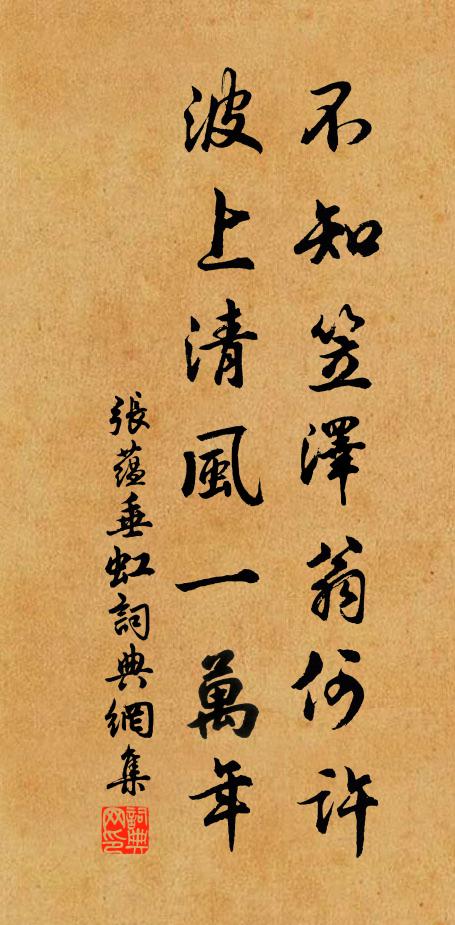 不知笠澤翁何許
波上清風一萬年
張蘊垂虹詞典網集
詞典網印